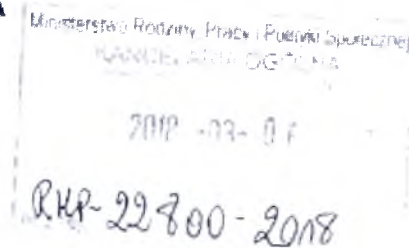 A
Ministerstwo Rodziny, Pracy i Polityki Społecznej
KANCELARIA OGÓLNA
2018 -03- 0
RKP-22800-2018